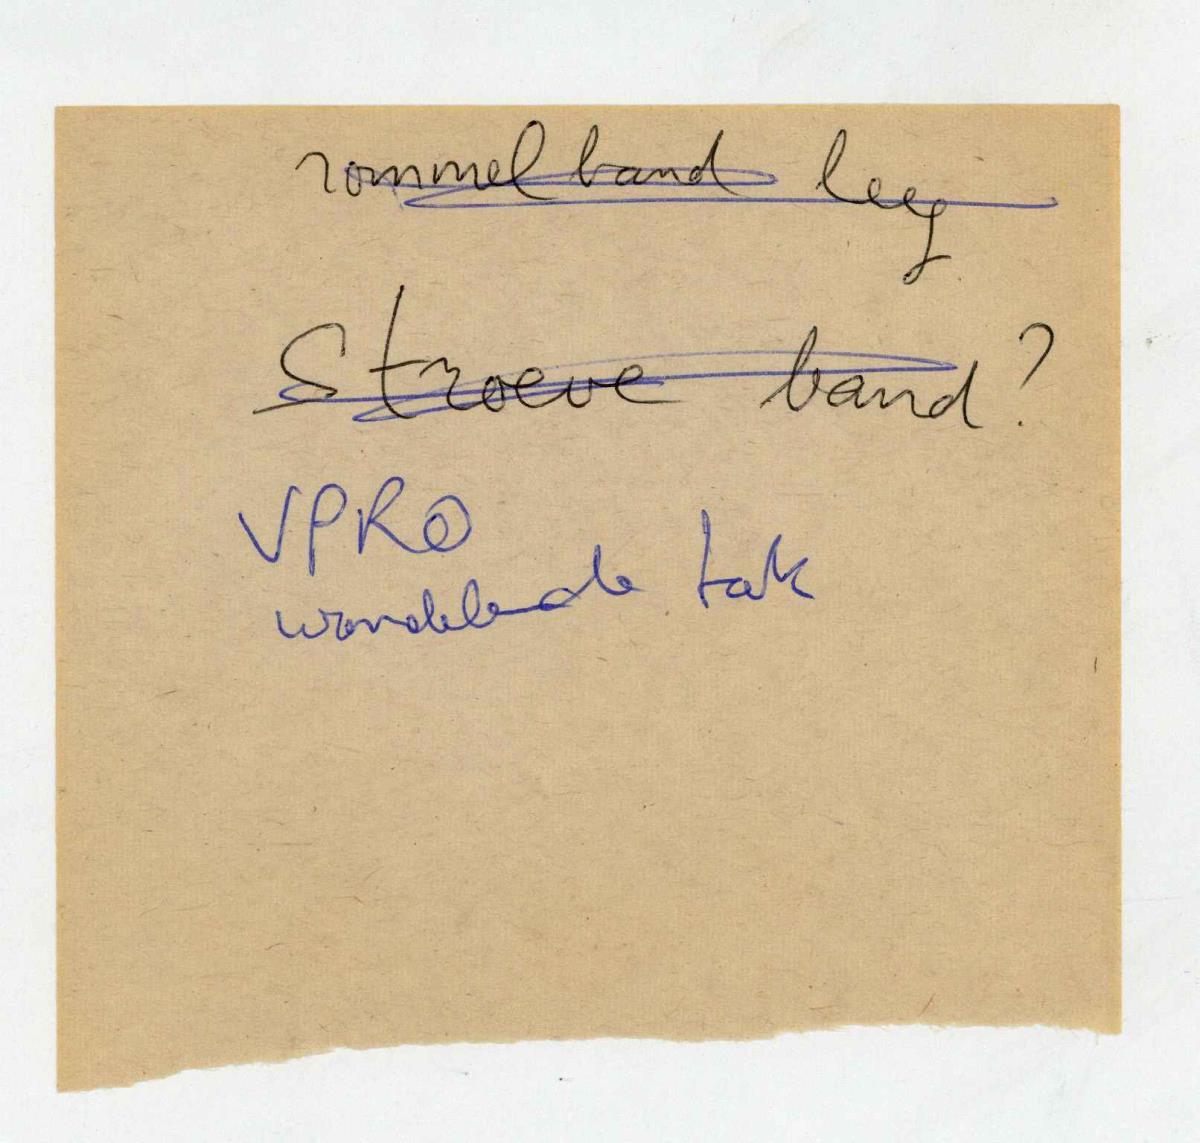 rommelband leeg
Stroeve band?
VPRO
wandelende tak